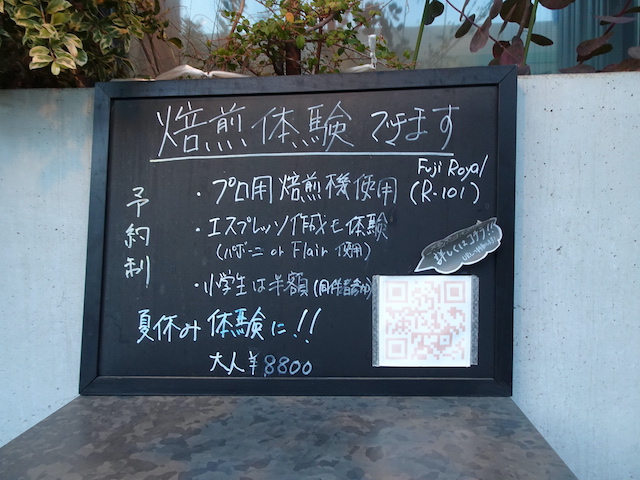 焙煎体験できます
・プロ用焙煎機使用 Fuji Royal (R-101)
・エスプレッソ作成も体験
(バンビーニ or Flair 使用)
・小学生は半額(同伴者参加)
予約制
夏休み体験に!!
大人¥8800
詳しくはコチラ!!